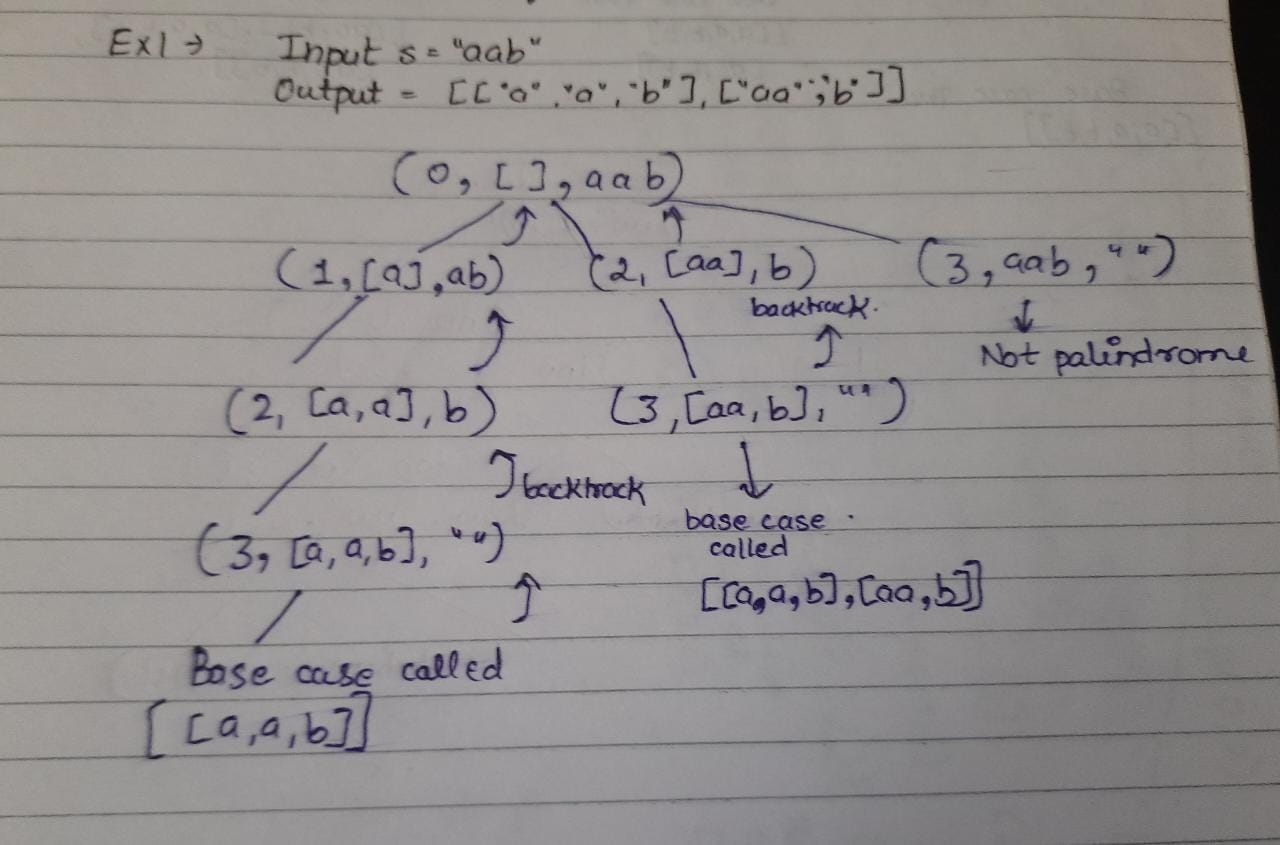 Ex1 → Input s = "aab"
Output = [["a", "a", "b"], ["aa", "b"]]
(0, [ ], aab)
(1, [a], ab) (2, [aa], b) (3, aab, " ")
backtrack.
Not palindrome
(2, [a, a], b) (3, [aa, b], " ")
backtrack
base case.
called
(3, [a, a, b], " ")
[[a, a, b], [aa, b]]
Base case called
[[a, a, b]]